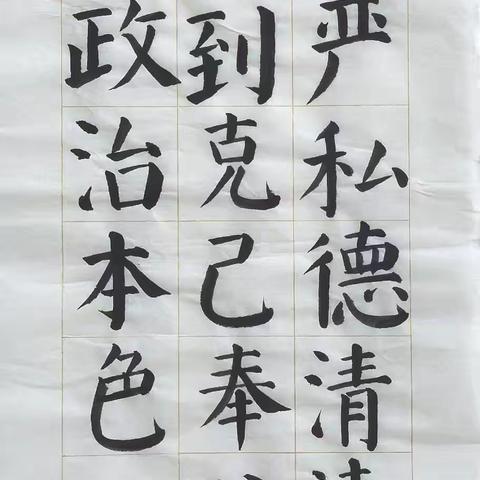 严私德清
到克己奉
政治本色